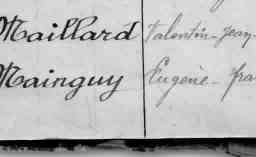 Maillard Valentin-Jean-
Mainguy Eugène-Fra